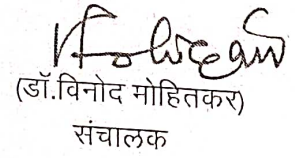 (डॉ.विनोद मोहितकर)
संचालक